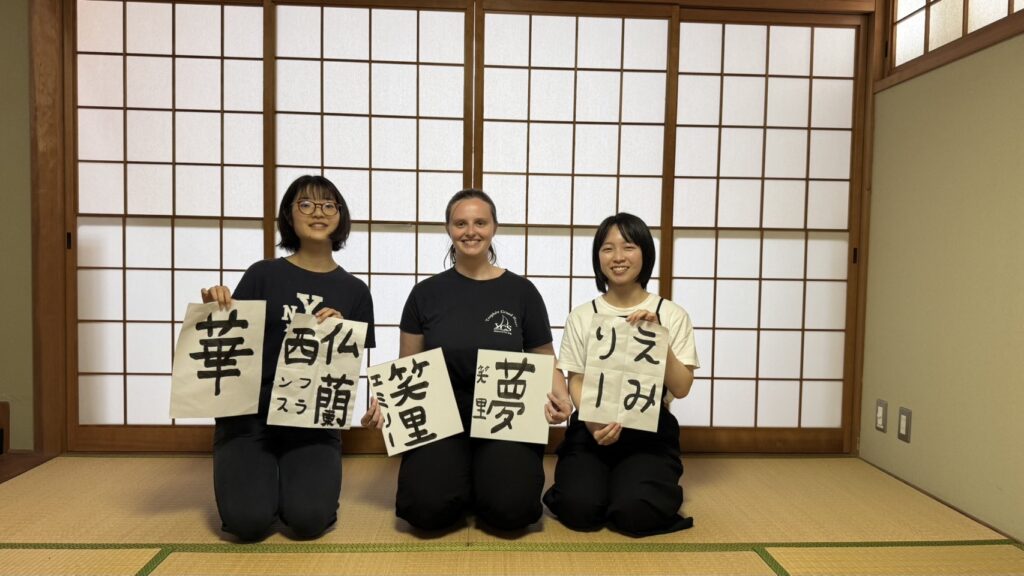 華
仏蘭
西
フラ
ンス
笑里
エミリー
夢
笑里
えみ
りー